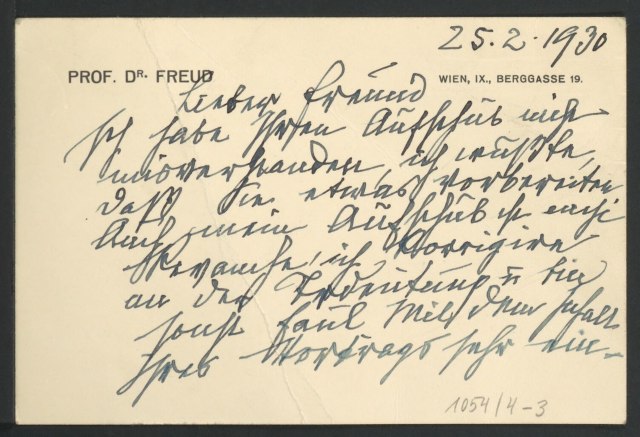 25.2.1930
PROF. DR. FREUD
WIEN, IX., BERGGASSE 19.
Lieber Freund
Ich habe Ihren Aufschub nicht
missverstanden, ich wußte,
daß Sie etwas vorbereiten
Auch mein Aufschub ist nicht
Revanche, ich korrigire
an der Trdeutung u bin
sonst faul Mit dem Inhalt
Ihres Vortrags sehr ein-
1054/4-3